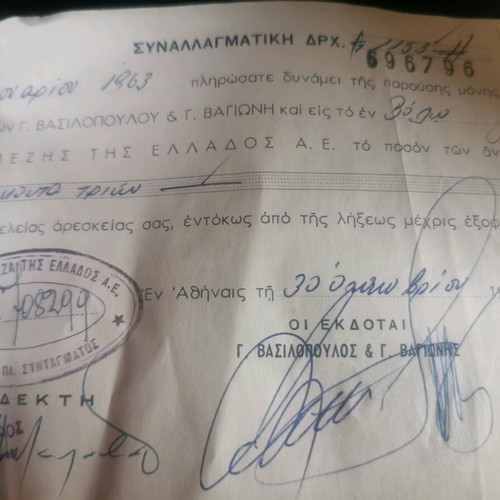 ΣΥΝΑΛΛΑΓΜΑΤΙΚΗ ΔΡΧ. # 1153 #
696796
1963 πληρώσατε δυνάμει τῆς παρούσης μόνης
Γ. ΒΑΣΙΛΟΠΟΥΛΟΥ & Γ. ΒΑΓΙΩΝΗ καὶ εἰς τὸ ἐν Βόλῳ
ΠΕΖΗΣ ΤΗΣ ΕΛΛΑΔΟΣ Α. Ε. τὸ ποσὸν τῶν ἄν
τριῶν
ελείας ἀρεσκείας σας, ἐντόκως ἀπὸ τῆς λήξεως μέχρις ἐξοφ
ΖΑ ΤΗΣ ΕΛΛΑΔΟΣ Α.Ε.
708290
ΠΛ. ΣΥΝΤΑΓΜΑΤΟΣ
Ἐν Ἀθήναις τῇ 30
ΟΙ ΕΚΔΟΤΑΙ
Γ. ΒΑΣΙΛΟΠΟΥΛΟΣ & Γ. ΒΑΓΙΩΝΗΣ
ΔΕΚΤΗ